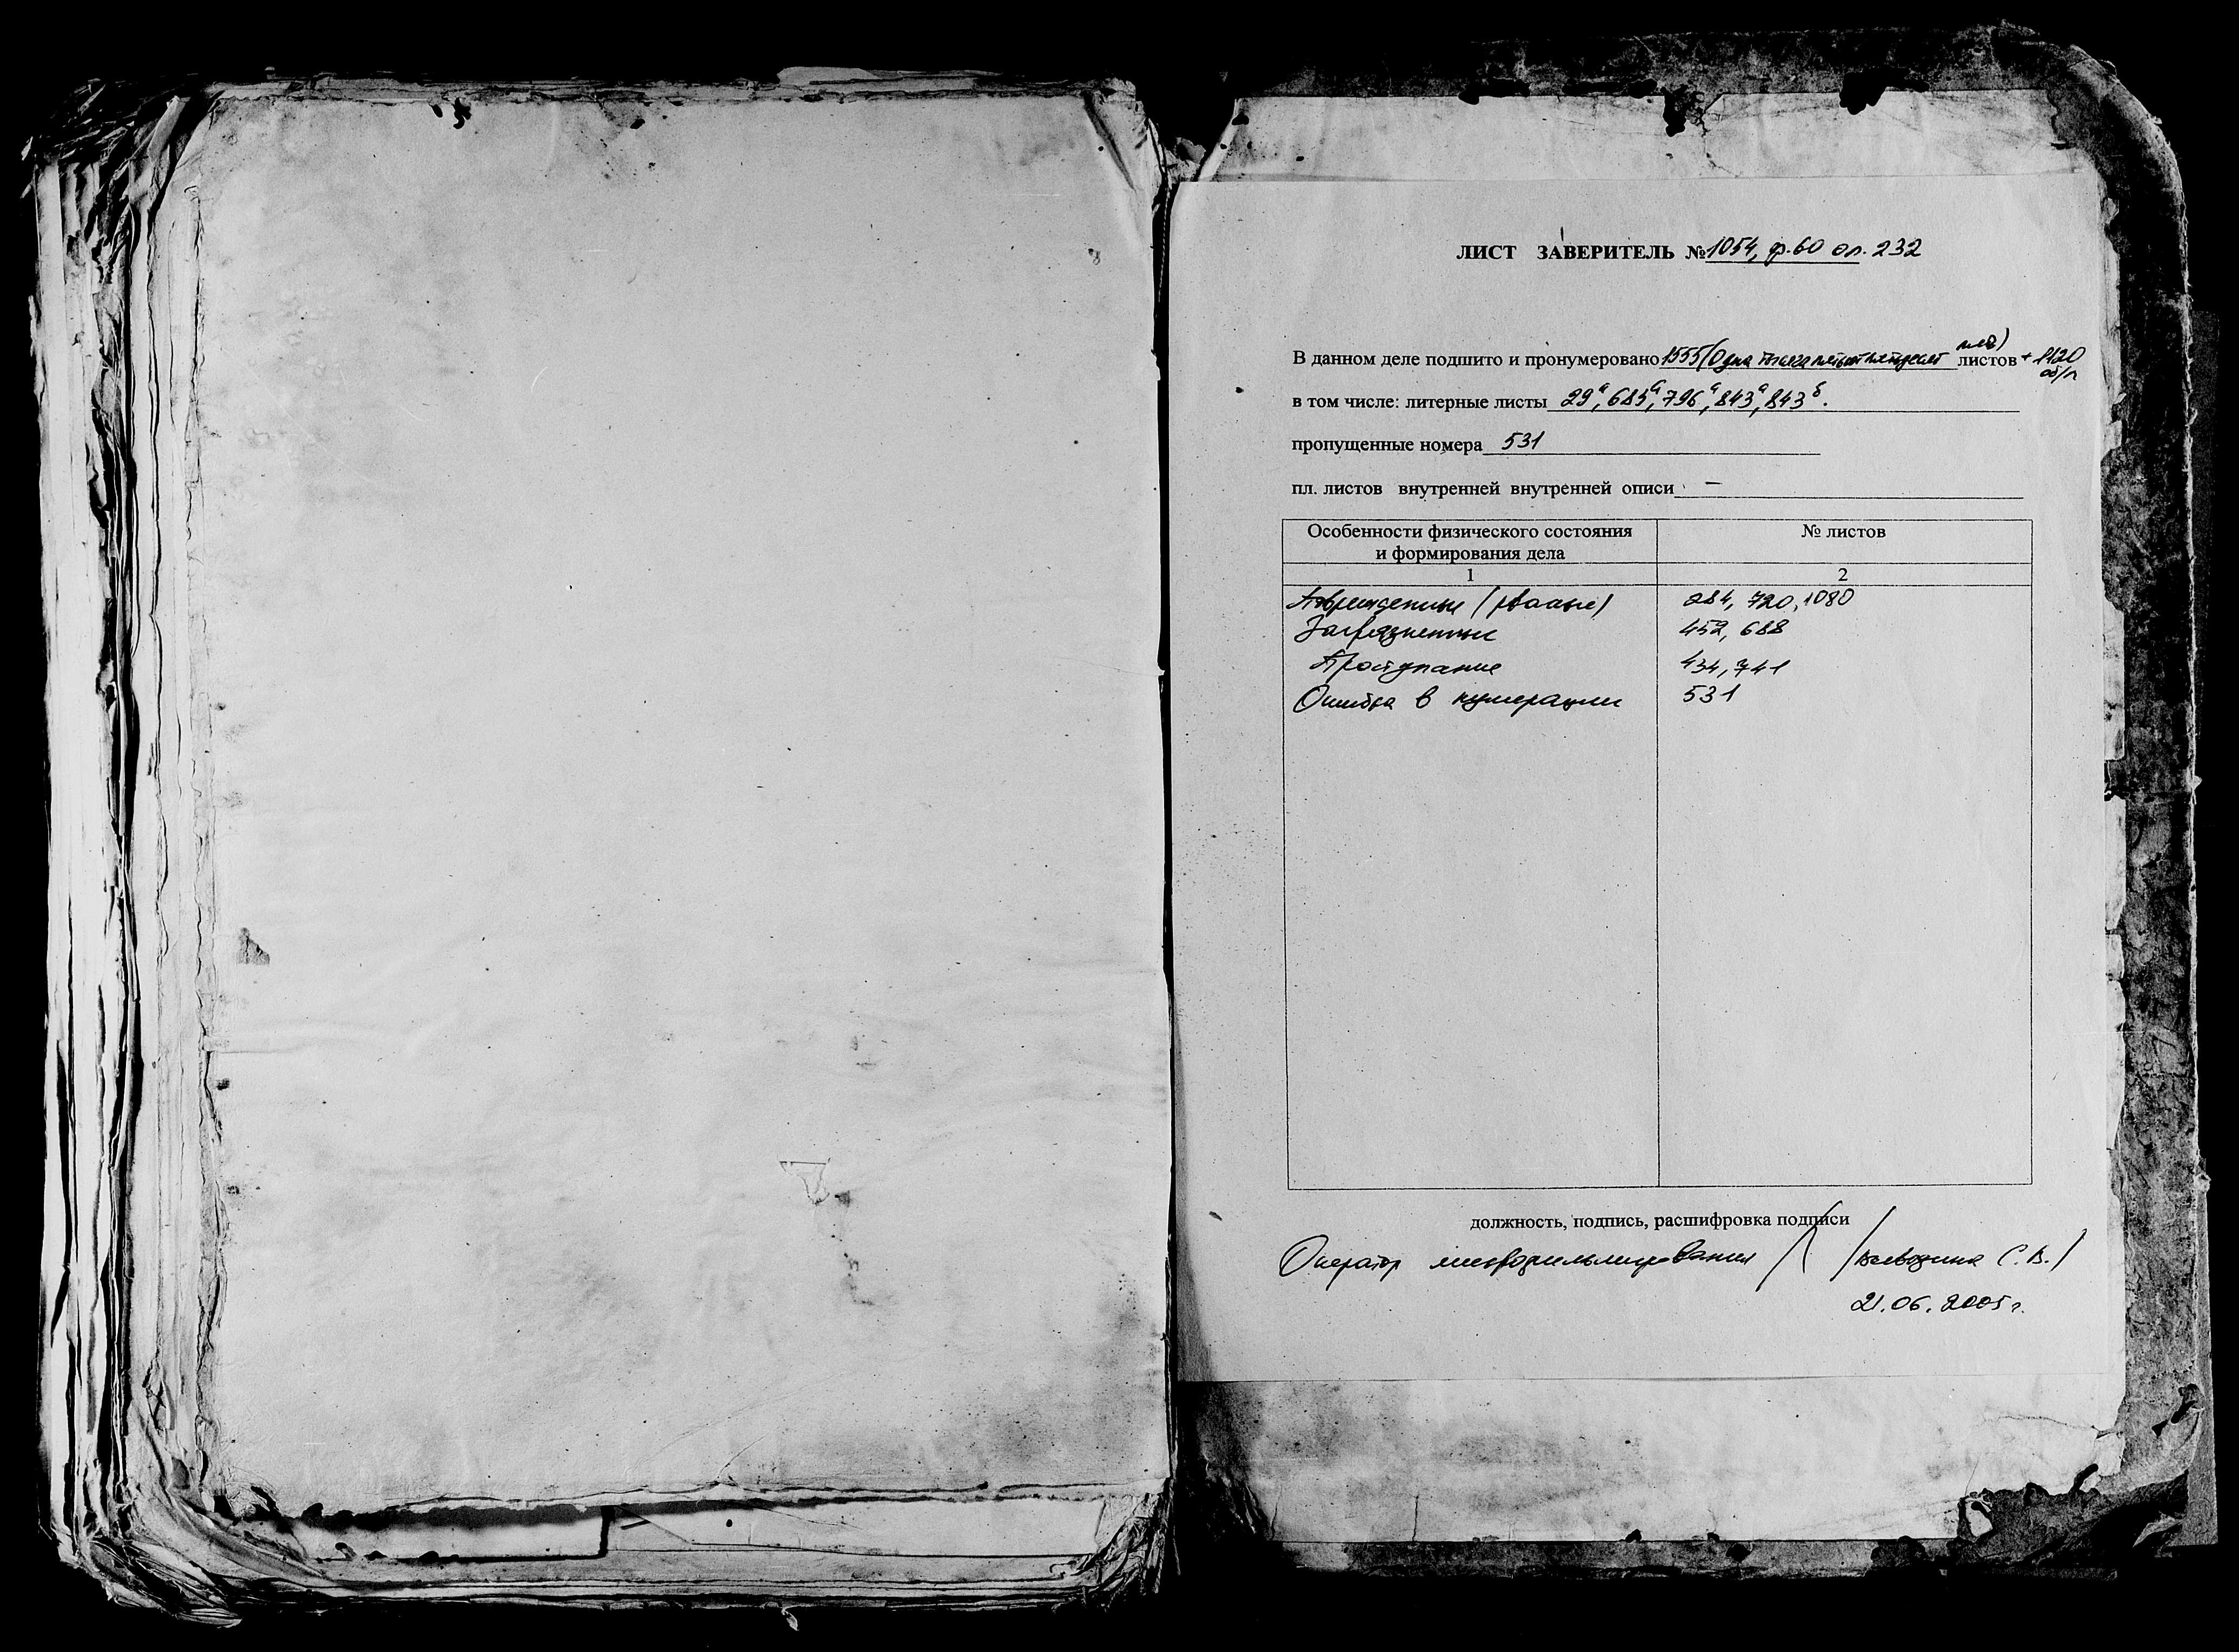 ЛИСТ ЗАВЕРИТЕЛЬ № 1054, ф.60 оп. 232
В данном деле подшито и пронумеровано 1555 (Одна тысяча пятьсот пятьдесят пять) листов + 1120 об/л
в том числе: литерные листы 29а, 685а, 796а, 843а, 843б.
пропущенные номера 531
пл. листов внутренней внутренней описи –
Особенности физического состояния
и формирования дела
№ листов
1 2
Поврежденные (рваные) 284, 720, 1080
Загрязненные 452, 688
Проступание 434, 741
Ошибка в нумерации 531
должность, подпись, расшифровка подписи
Оператор микрофильмирования / / С.В.)
21.06.2005 г.